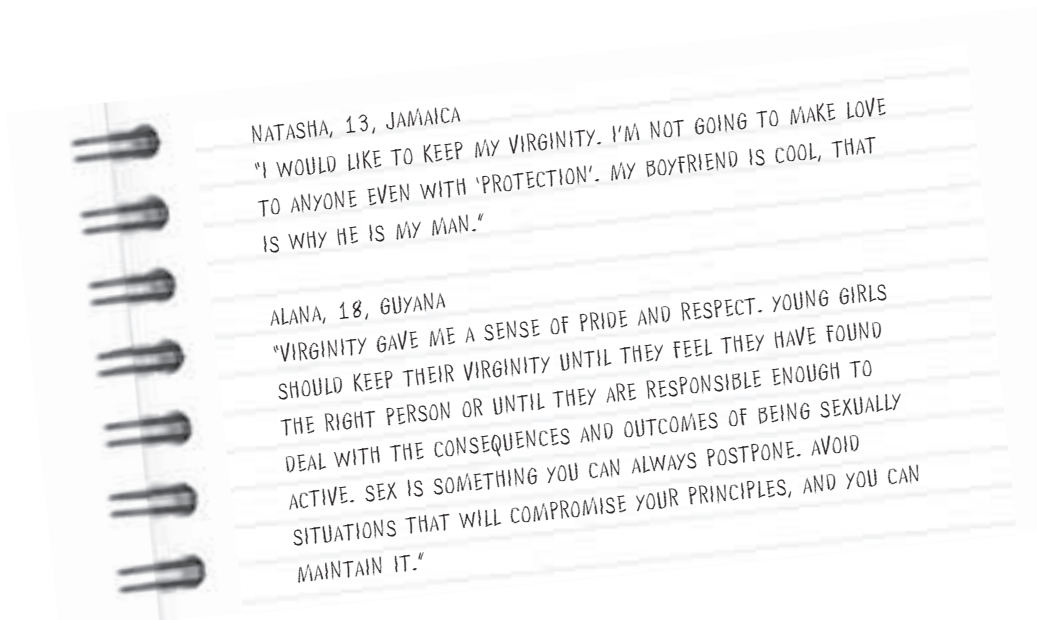 NATASHA, 13, JAMAICA
"I WOULD LIKE TO KEEP MY VIRGINITY. I'M NOT GOING TO MAKE LOVE
TO ANYONE EVEN WITH 'PROTECTION'. MY BOYFRIEND IS COOL, THAT
IS WHY HE IS MY MAN."
ALANA, 18, GUYANA
"VIRGINITY GAVE ME A SENSE OF PRIDE AND RESPECT. YOUNG GIRLS
SHOULD KEEP THEIR VIRGINITY UNTIL THEY FEEL THEY HAVE FOUND
THE RIGHT PERSON OR UNTIL THEY ARE RESPONSIBLE ENOUGH TO
DEAL WITH THE CONSEQUENCES AND OUTCOMES OF BEING SEXUALLY
ACTIVE. SEX IS SOMETHING YOU CAN ALWAYS POSTPONE. AVOID
SITUATIONS THAT WILL COMPROMISE YOUR PRINCIPLES, AND YOU CAN
MAINTAIN IT."